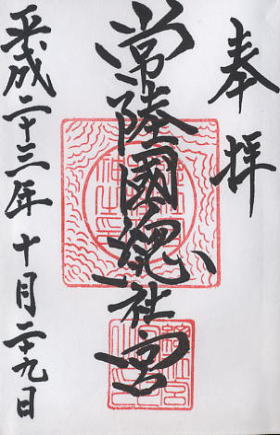 奉拝
常陸國総社宮
平成二十三年十月二十九日